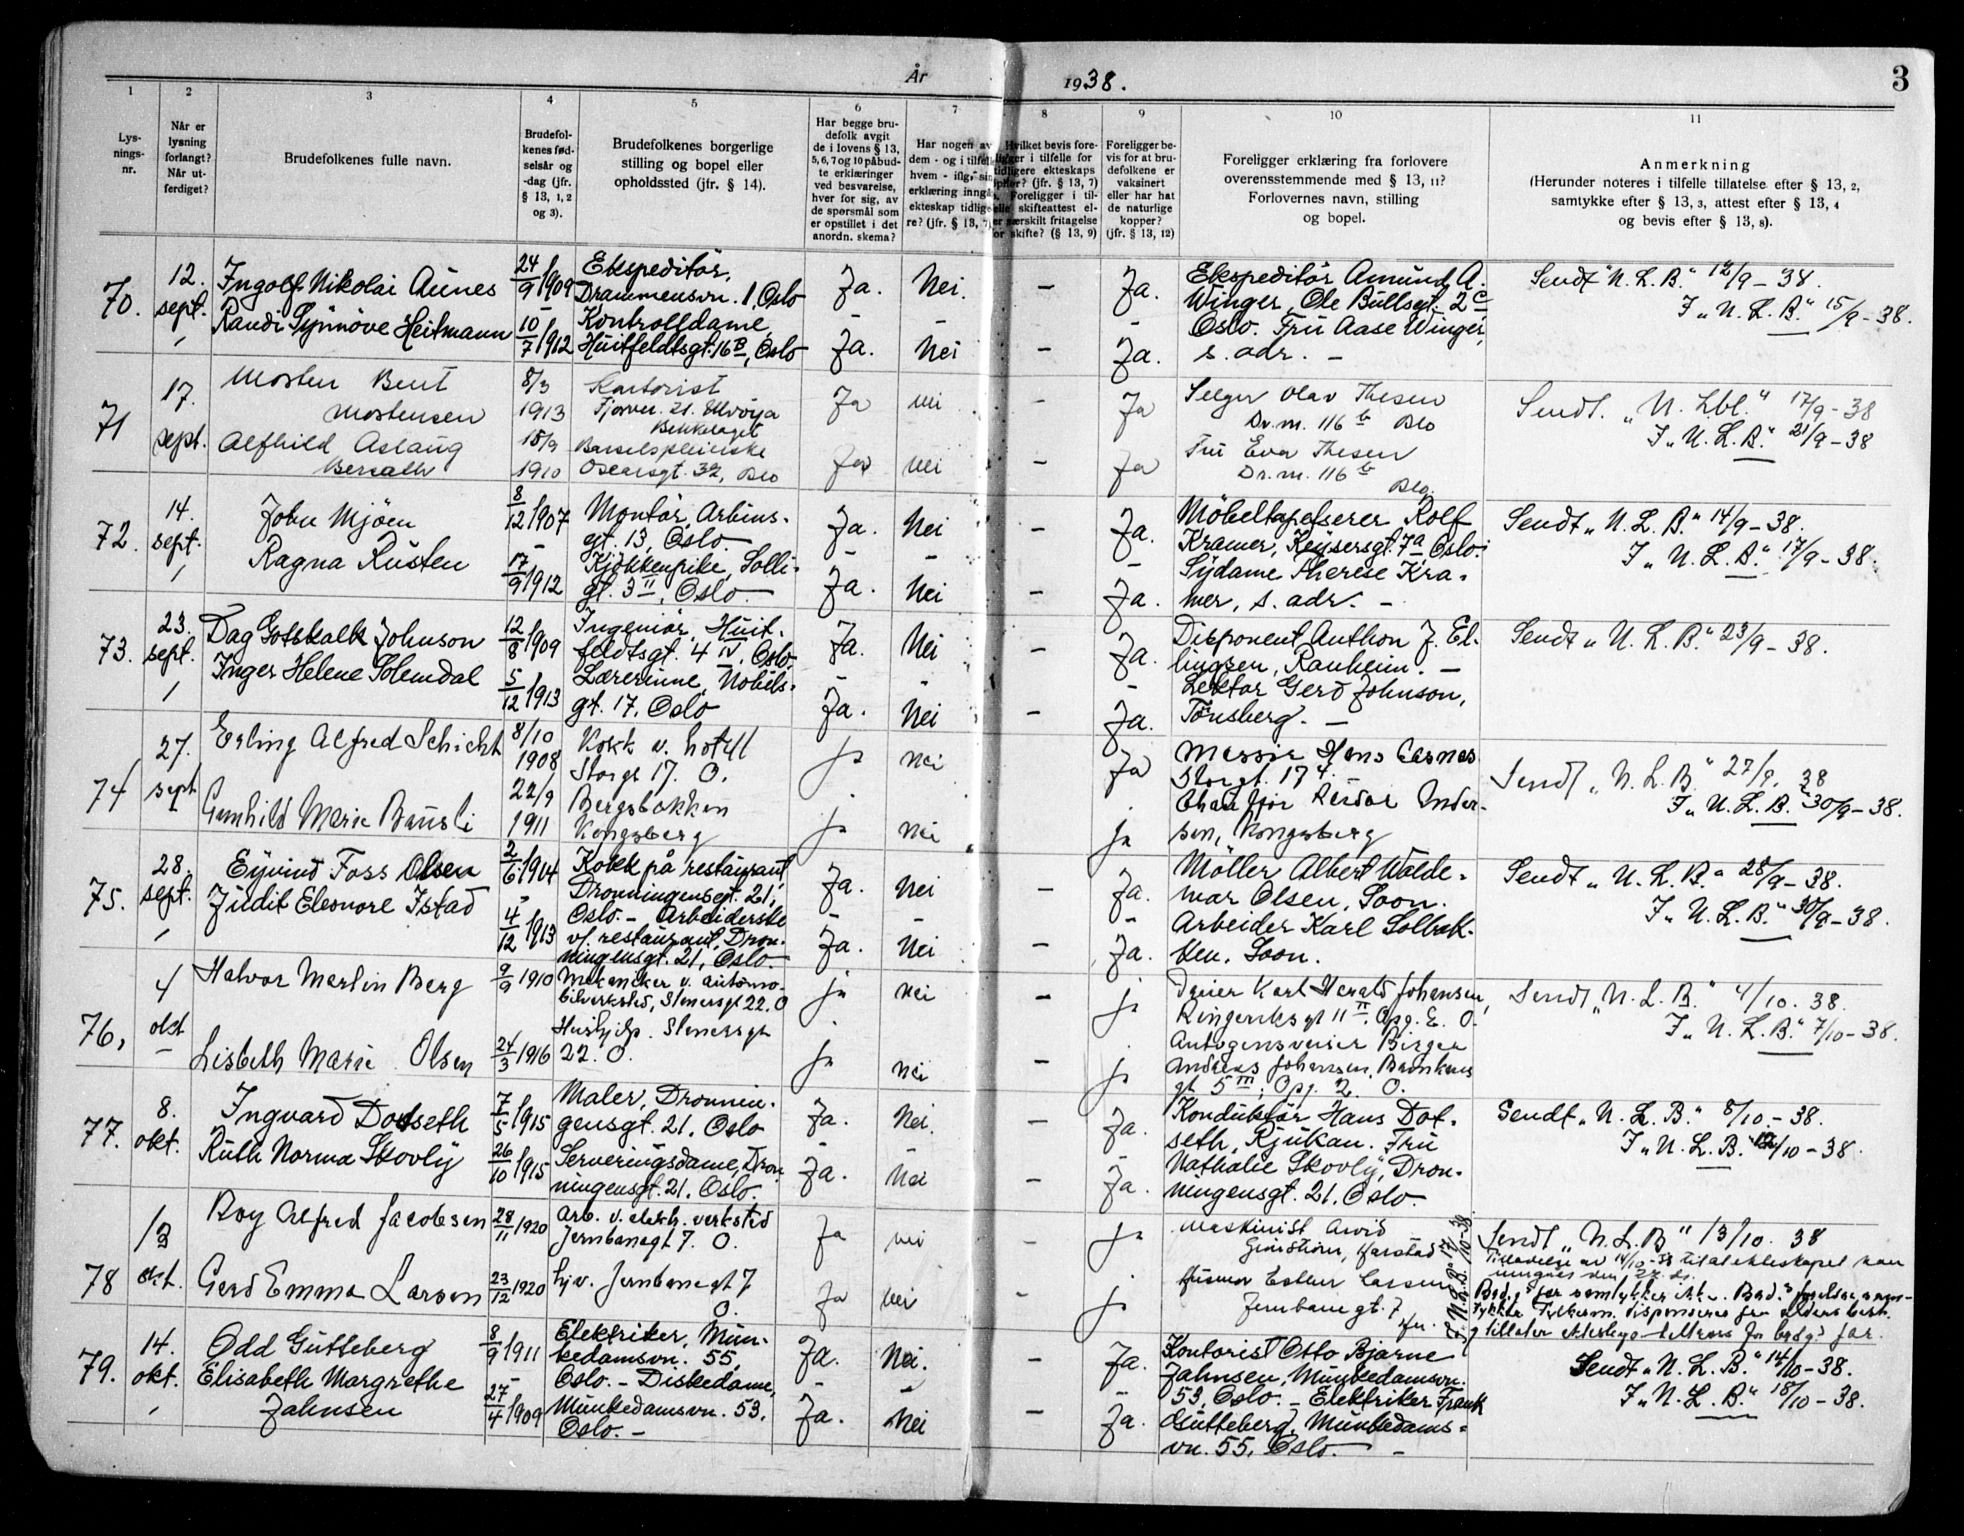 År 1938.
3
1 2 3 4 5 6 7 8 9 10 11
Lys-
nings-
nr.
Når er
lysning
forlangt?
Når ut-
ferdiget?
Brudefolkenes fulle navn.
Brudefol-
kenes fød-
selsår og
-dag (jfr.
§ 13, 1, 2
og 3).
Brudefolkenes borgerlige
stilling og bopel eller
opholdssted (jfr. § 14).
Har begge bru-
defolk avgit
de i lovens § 13,
5, 6, 7 og 10 påbud-
te erklæringer
ved besvarelse,
hver for sig, av
de spørsmål som
er opstillet i det
anordn. skema?
Har nogen av
dem - og i tilfelle
hvem - iflg. sin
erklæring inngå
ekteskap tidlige-
re? (jfr. § 13, 7)
Hvilket bevis fore-
ligger i tilfelle for
tidligere ekteskaps
ophør? (jfr. § 13, 7)
Foreligger i til-
felle skifteattest el-
ler særskilt fritagelse
for skifte? (§ 13, 9)
Foreligger be-
vis for at bru-
defolkene er
vaksinert
eller har hat
de naturlige
kopper?
(jfr. § 13, 12)
Foreligger erklæring fra forlovere
overensstemmende med § 13, 11?
Forlovernes navn, stilling
og bopel.
Anmerkning
(Herunder noteres i tilfelle tillatelse efter § 13, 2,
samtykke efter § 13, 3, attest efter § 13, 4
og bevis efter § 13, 8).
70.
12.
sept.
Ingolf Nikolai Aunes
Randi Synnöve Heitmann
24/9 1909
10/7 1912
Ekspeditör,
Drammensvn. 1, Oslo
Kontrolldame,
Huitfeldtsgt. 16B, Oslo
Ja. Nei. – Ja.
Ja. Nei – Ja.
Ekspeditör Amund A.
Winger, Ole Bullsgt. 2c
Oslo. Fru Aase Winger,
s. adr. –
Sendt "N. L. B." 12/9 – 38.
I "N. L. B." 15/9 – 38.
71
17.
sept.
Morten Bent
Mortensen
Alfhild Aslaug
8/3
1913
15/9
1910
Kontorist
Bekkelaget
Oscarsgt. 32, Oslo
Ja nei – Ja
Ja nei – Ja
Selger Olav Thesen
Dr.m. 116 b Oslo
Fru Eva Thesen
Dr.m. 116 b
Oslo.
Sendt. "N. Lbl." 17/9 – 38
I "N. L. B." 21/9 – 38
72.
14.
sept.
John Mjöen
Ragna Rusten
8/12 1907
17/9 1912
Montör, Arbins-
gt. 13, Oslo.
Kjökkenpike, Solli-
gt. 3 II, Oslo. –
Ja. Nei – Ja.
Ja. Nei – Ja.
Möbeltapetserer Rolf
Kramer, Keysersgt. 7a Oslo.
Sydame Therese Kra-
mer, s. adr. –
Sendt "N. L. B." 14/9 – 38.
I "N. L. B." 17/9 – 38.
73.
23.
sept.
Dag Gotskalk Johnson
Inger Helene Solemdal
12/8 1909
5/12 1913
Ingeniör, Huit-
feldtsgt. 4 IV, Oslo.
Lærerinne, Nobels-
gt. 17, Oslo
Ja. Nei – Ja.
Ja. Nei – Ja.
Disponent Anthon J. El-
lingsen, Ranheim. –
Lektor Gerd Johnson,
Tönsberg. –
Sendt "N. L. B." 23/9 – 38.
74
27.
sept
Erling Alfred Schicht
Gunhild Marie
8/10
1908
22/9
1911
Kokk v. hotell
Storgt 17. O.
Bergsbakken
Kongsberg
Ja nei Ja
Ja nei Ja
Hans
Storgt. 17 4.
Reidar Ander-
sen, Kongsberg
Sendt "N. L. B." 27/9. 38
I "N. L. B." 30/9 – 38.
75.
28.
sept.
Eyvind Foss Olsen
Judit Eleonore Istad
2/6 1904
4/12 1913
Kokk på restaurant,
Dronningensgt. 21,
Oslo. – Arbeiderske
v/. restaurant, Dron-
ningensgt. 21, Oslo. –
Ja. Nei – Ja.
Ja. Nei – Ja.
Möller Albert Walde-
mar Olsen, Soon.
Arbeider Karl Solbak-
ken, Soon.
Sendt "N. L. B." 28/9 – 38.
I "N. L. B." 30/9 – 38.
76,
4
okt
Halvor Martin Berg
Lisbeth Marie Olsen
9/9 1910
24/3 1916
Mekaniker v. automo-
bilverksted, Stenersgt 22. O
Hushjelp. Stenersgt
22. O.
ja nei – ja
ja nei – ja
Karl Harald Johansen,
Ringeriksgt 11 II. Opg. E. O.
Birger
Andreas Johansen,
gt 5 III, Opg. 2. O.
Sendt "N. L. B." 4/10. 38.
I "N. L. B." 7/10 – 38.
77.
8.
okt.
Ingvard Dotseth
Ruth Norma Skovly
7/5 1915
26/10 1915
Maler, Dronnin-
gensgt. 21, Oslo
Serveringsdame, Dron-
ningensgt. 21, Oslo.
Ja. Nei. – Ja.
Ja. Nei – Ja.
Konduktör Hans Dot-
seth, Rjukan. Fru
Nathalie Skovly, Dron-
ningensgt. 21, Oslo.
Sendt "N. L. B." 8/10 – 38.
I "N. L. B." 12/10 – 38.
78
13
okt.
Roy Alfred Jacobsen
Gerd Emma Larsen
28/11 1920
23/12 1920
Arb. v. elektr. verksted
Jernbanegt 7. O.
hj.v. Jernbanegt 7
O.
Ja nei ja
Ja nei ja
Maskinist Arvid
Harstad
Husmor Esther Larsen
Jernbanegt. 7
I "N. L. B." 17/10-38.
Sendt "N. L. B" 13/10. 38
Tillatelse av 14/10-38 til at ekteskapet kan
79.
14.
okt.
Odd Gutteberg
Elisabeth Margrethe
Jahnsen
8/9 1911
27/4 1909
Elektriker, Mun-
kedamsvn. 55,
Oslo. – Diskedame,
Munkedamsvn. 53,
Oslo. –
Ja. Nei. – Ja.
Ja. Nei – Ja.
Kontorist Otto Bjarne
Jahnsen, Munkedamsvn.
53, Oslo. – Elektriker Frank
Gutteberg, Munkedams-
vn. 55, Oslo. –
Sendt "N. L. B." 14/10 – 38.
I "N. L. B." 18/10 – 38.